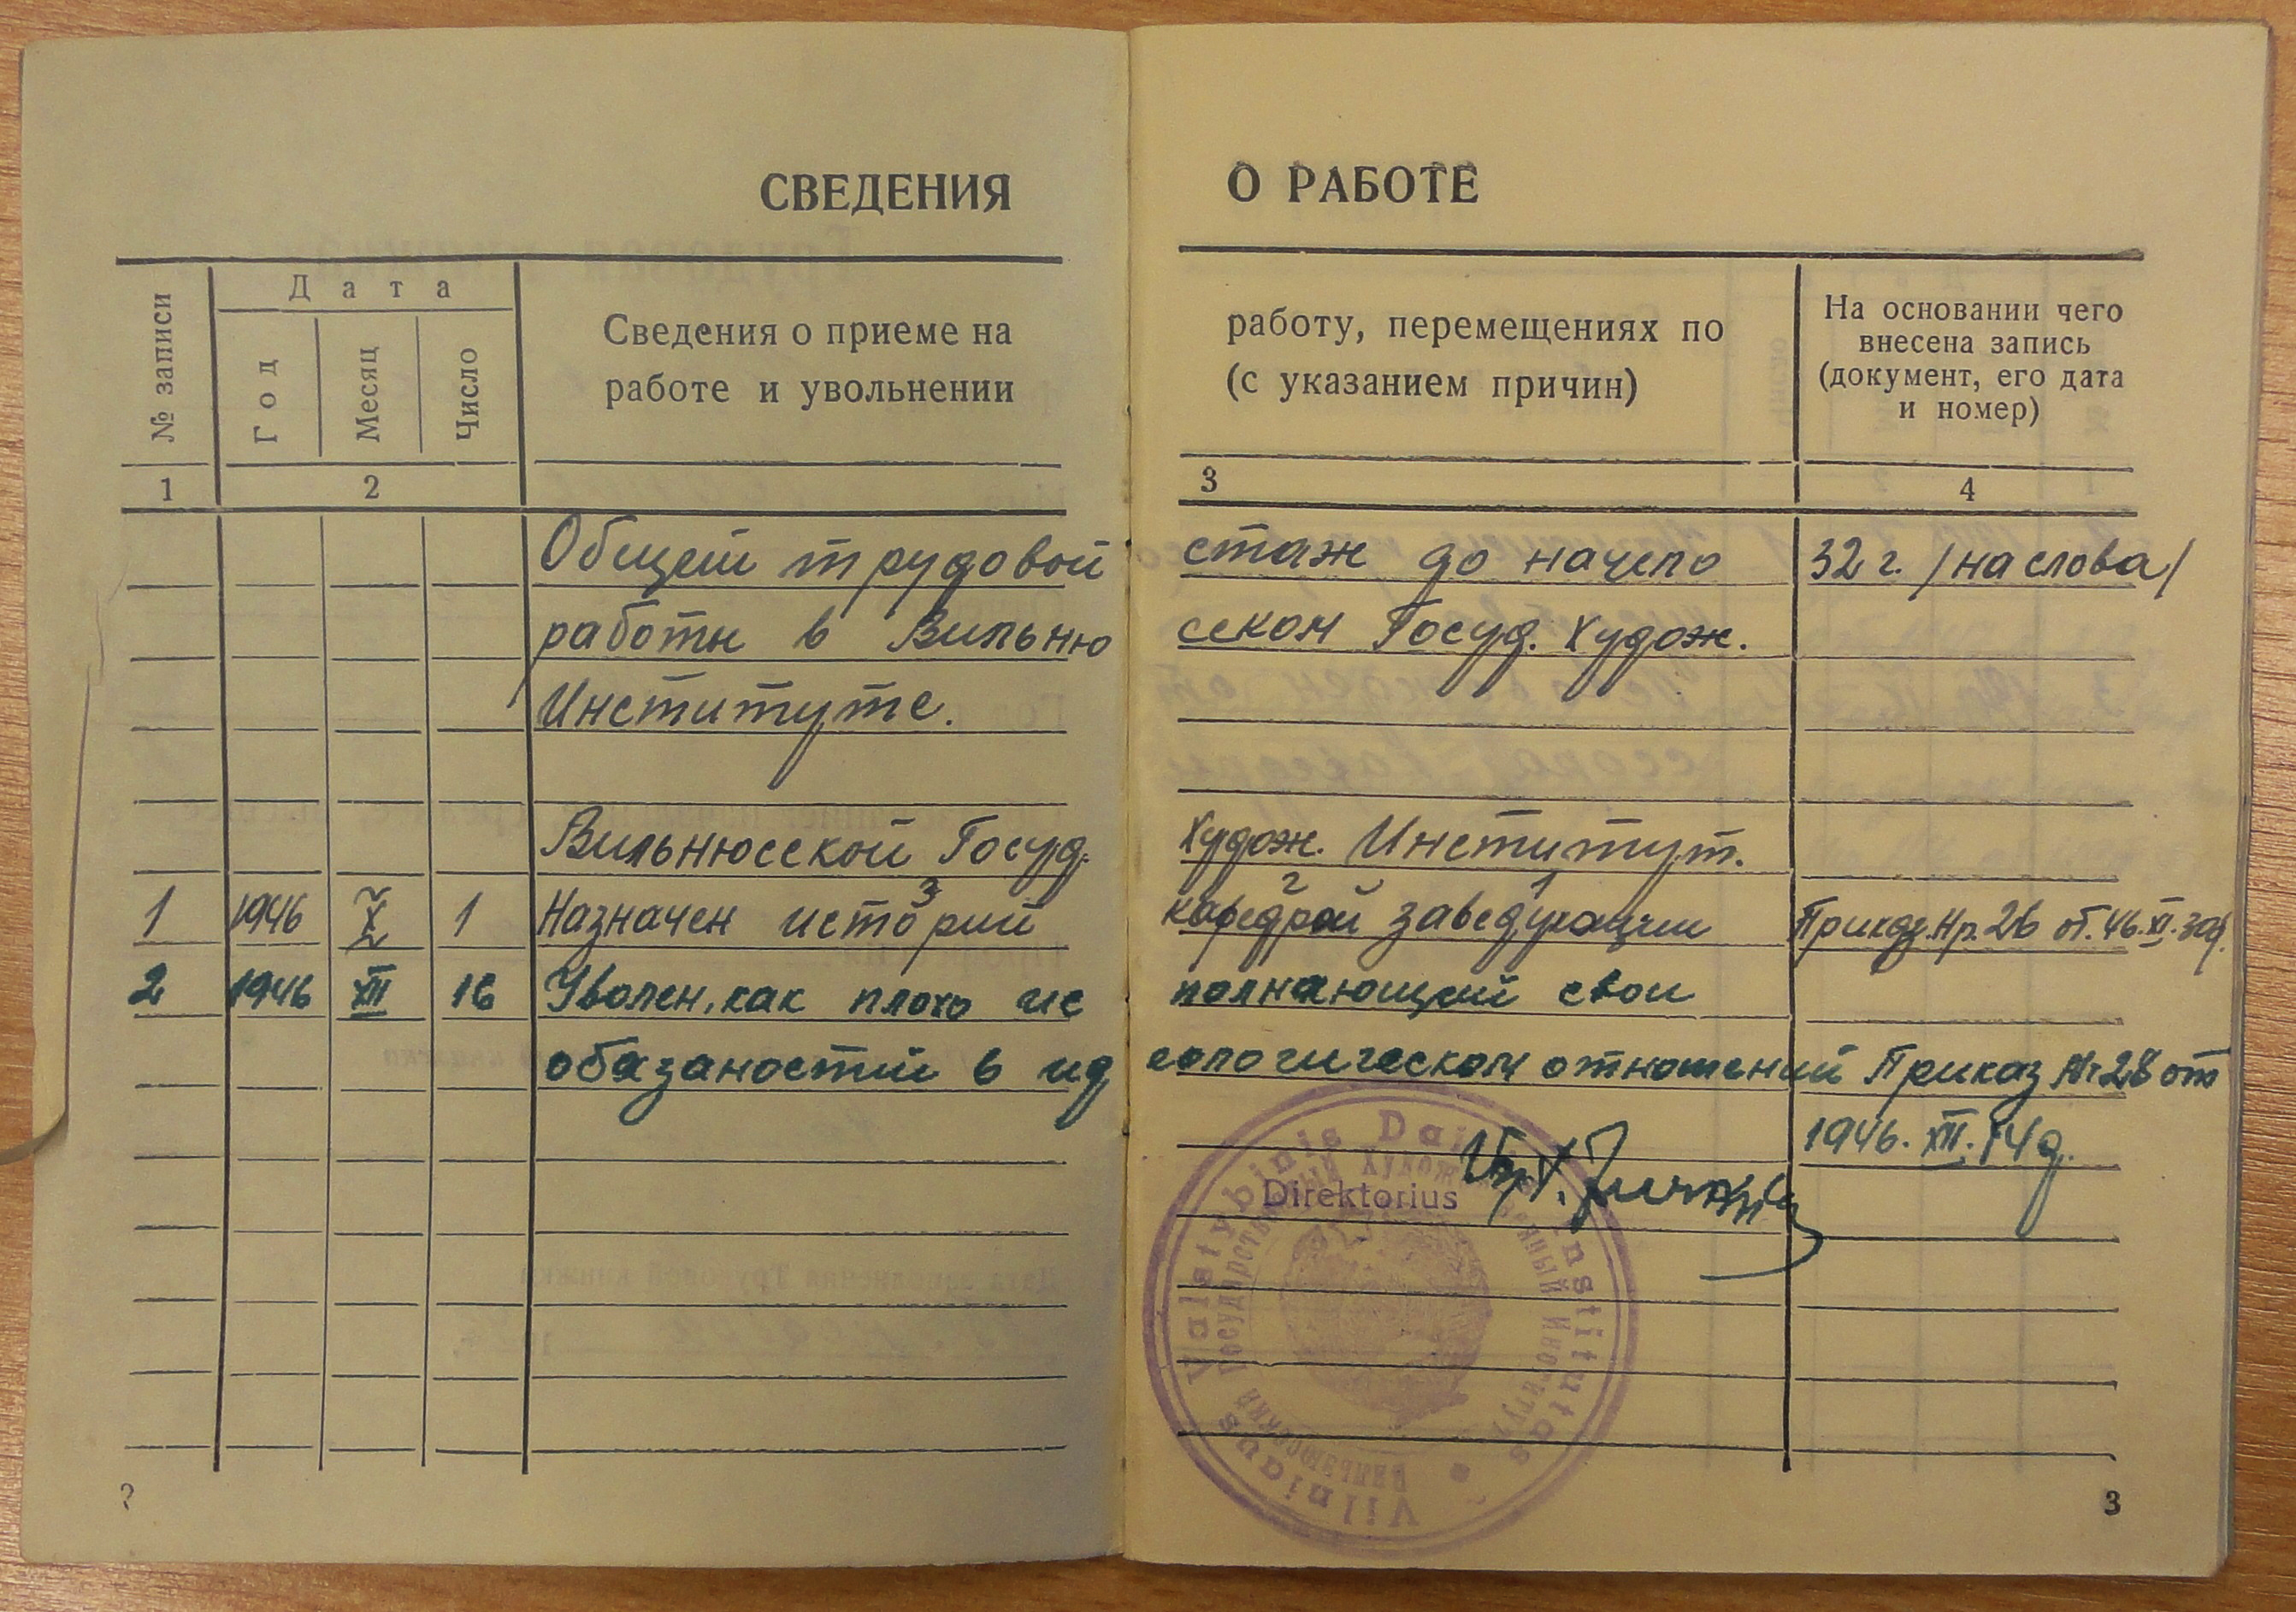 СВЕДЕНИЯ О РАБОТЕ
№ записи
Дата
Год
Месяц
Число
Сведения о приеме на работу, перемещениях по
работе и увольнении (с указанием причин)
На основании чего
внесена запись
(документ, его дата
и номер)
1 2 3 4
Общей трудовой стаж до начело 32 г. /на слова/
работы в Вильнюсском Госуд. Худож.
Институте.
Вильнюсской Госуд. Худож. Институт.
1 1946 X 1 Назначен 3 историй 2 кафедрой 1 заведующим Приказ. Нр. 26 от. 46. XI. 30д.
2 1946 XII 16 Уволен, как плохо исполняющий свои
обязаностей в идеологическом отношений Приказ Nr 28 от
1946. XII. 14 д.
Direktorius
Vilniaus Valstybinis Dailės Institutas
Вильнюсский Государственный Художественный Институт
2
3